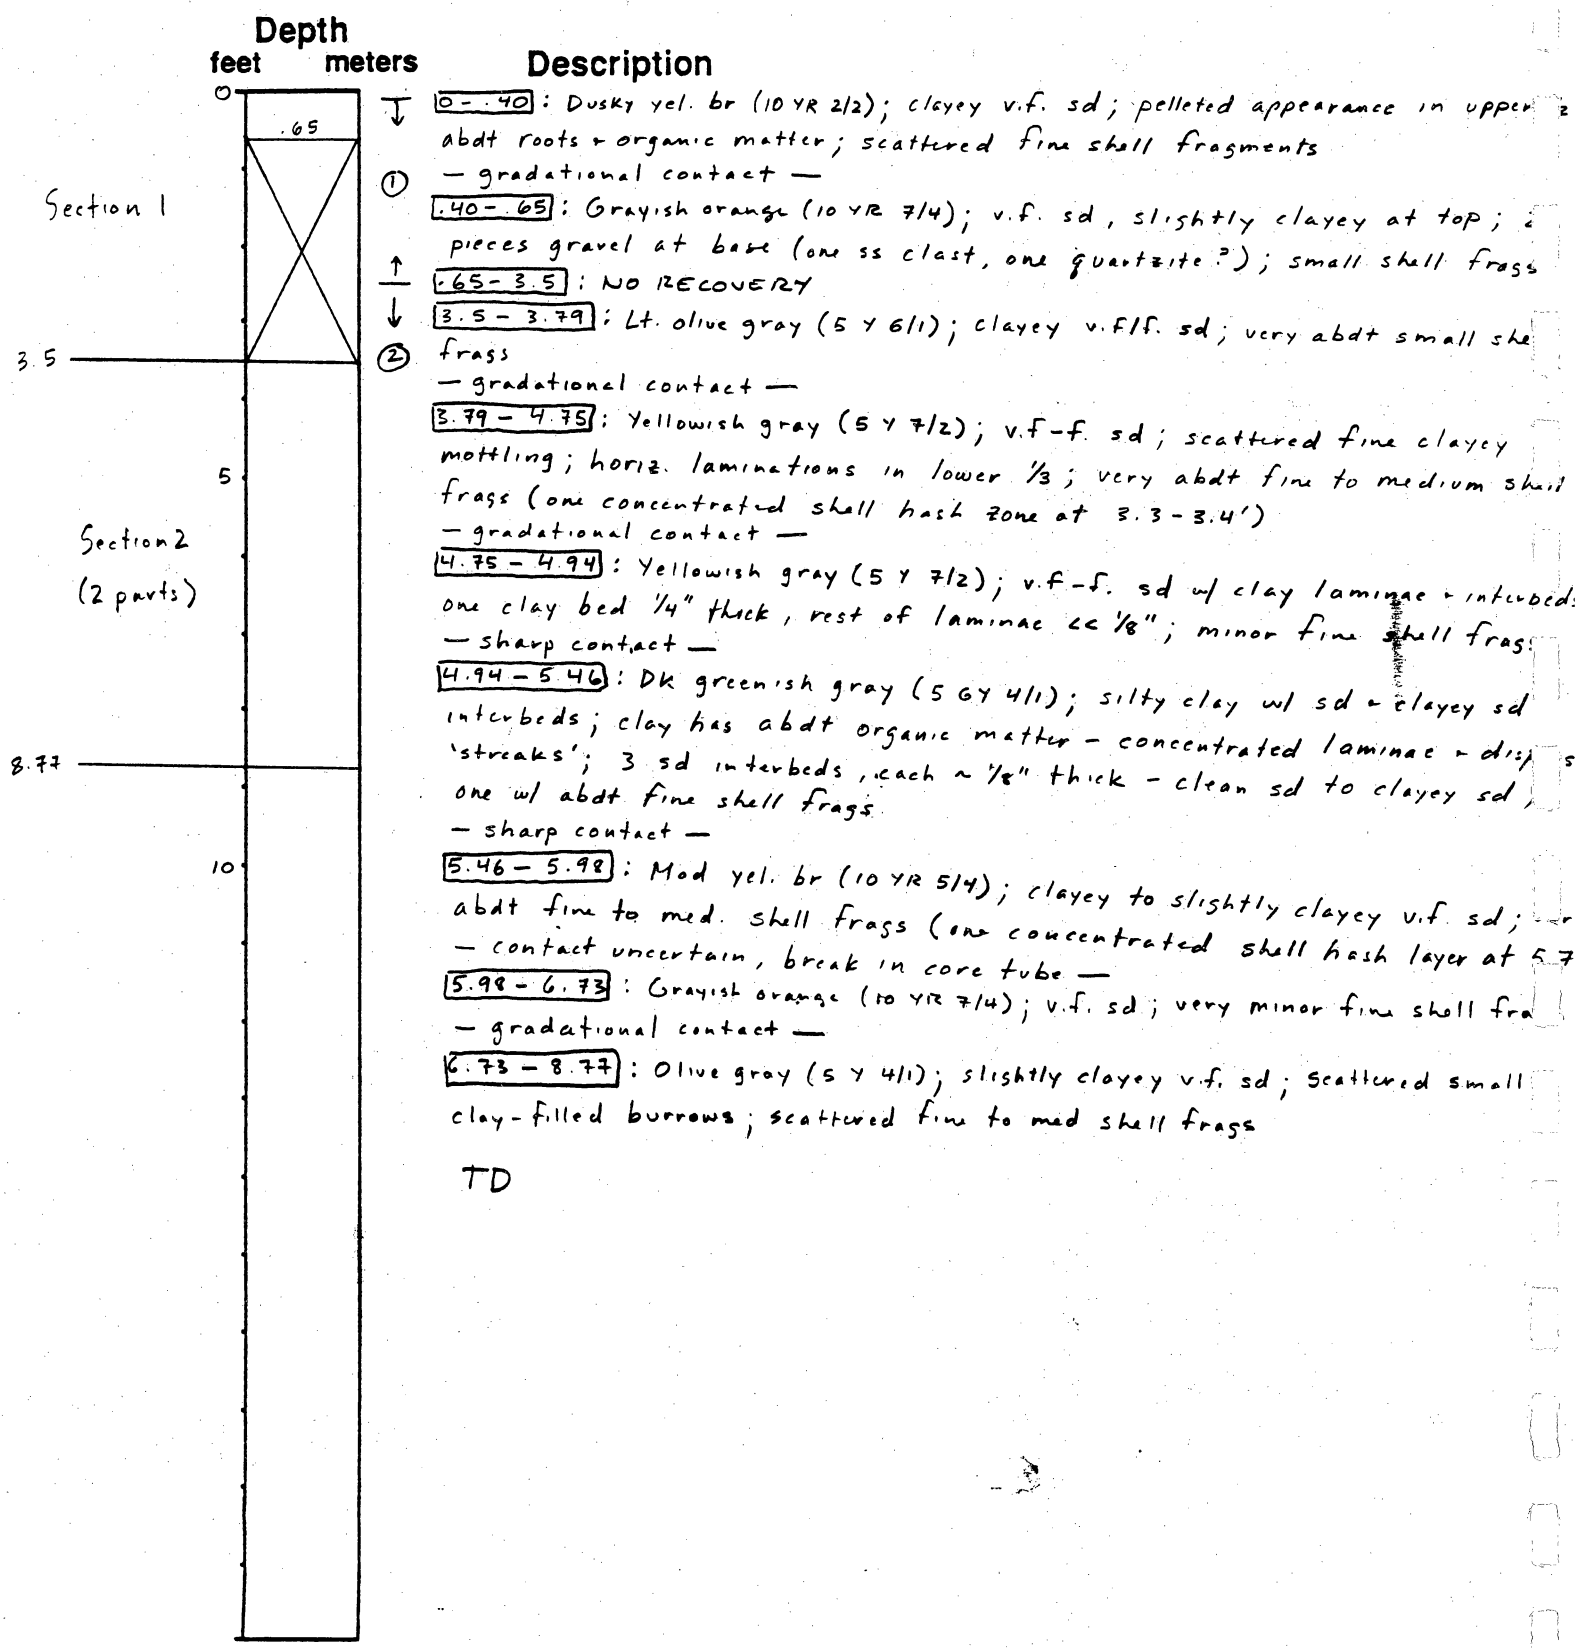 Depth
feet meters Description
0
.65
Section 1
3.5
5
Section 2
(2 parts)
8.77
10
①
②
0 - .40: Dusky yel. br (10 YR 2/2); clayey v.f. sd; pelleted appearance in upper
abdt roots + organic matter; scattered fine shell fragments
— gradational contact —
.40 - .65: Grayish orange (10 YR 7/4); v.f. sd, slightly clayey at top;
pieces gravel at base (one ss clast, one quartzite?); small shell frags
.65 - 3.5: NO RECOVERY
3.5 - 3.79: Lt. olive gray (5 Y 6/1); clayey v.f/f. sd; very abdt small she
frags
— gradational contact —
3.79 - 4.75: Yellowish gray (5 Y 7/2); v.f-f. sd; scattered fine clayey
mottling; horiz. laminations in lower 1/3; very abdt fine to medium shell
frags (one concentrated shell hash zone at 3.3-3.4')
— gradational contact —
4.75 - 4.94: Yellowish gray (5 Y 7/2); v.f-f. sd w/ clay laminae + interbeds
one clay bed 1/4" thick, rest of laminae << 1/8"; minor fine shell frags
— sharp contact —
4.94 - 5.46: DK greenish gray (5 GY 4/1); silty clay w/ sd + clayey sd
interbeds; clay has abdt organic matter - concentrated laminae + disp
'streaks'; 3 sd interbeds, each ~ 1/8" thick - clean sd to clayey sd,
one w/ abdt fine shell frags
— sharp contact —
5.46 - 5.98: Mod yel. br (10 YR 5/4); clayey to slightly clayey v.f. sd;
abdt fine to med. shell frags (one concentrated shell hash layer at 5.7
— contact uncertain, break in core tube —
5.98 - 6.73: Grayish orange (10 YR 7/4); v.f. sd; very minor fine shell fra
— gradational contact —
6.73 - 8.77: Olive gray (5 Y 4/1); slightly clayey v.f. sd; scattered small
clay-filled burrows; scattered fine to med shell frags
TD